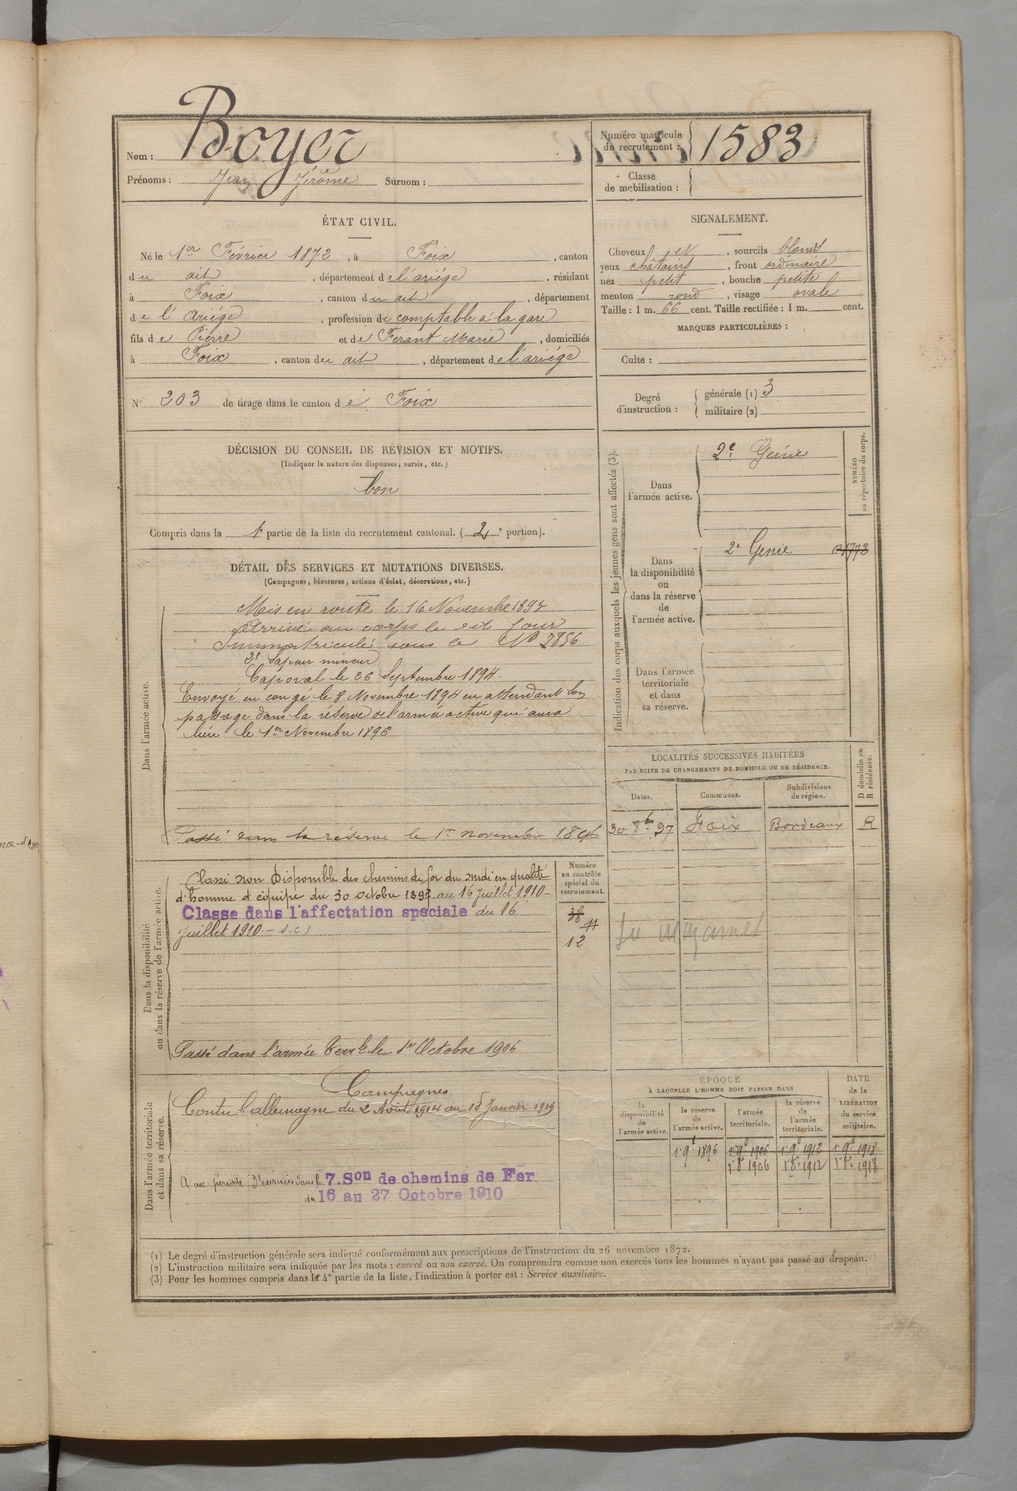 Nom : Boyer
Prénoms : Jean Jérôme Surnom :
Numéro matricule du recrutement : 1583
Classe de mobilisation :
ÉTAT CIVIL.
Né le 1er Février 1872, à Foix, canton
du dit, département de l'ariége, résidant
à Foix, canton du dit, département
de l'Ariége, profession de comptable à la gare
fils de Pierre et de Ferant Marie, domiciliés
à Foix, canton du dit, département de l'ariége
N° 203 de tirage dans le canton de Foix
SIGNALEMENT.
Cheveux et, sourcils blonds
yeux châtains, front ordinaire
nez petit, bouche petite
menton rond, visage ovale
Taille : 1 m. 66 cent. Taille rectifiée : 1 m. cent.
MARQUES PARTICULIÈRES :
Culte :
Degré d'instruction : générale (1) 3
militaire (2)
DÉCISION DU CONSEIL DE RÉVISION ET MOTIFS.
(Indiquer la nature des dispenses, sursis, etc.)
bon
Compris dans la 1e partie de la liste du recrutement cantonal. (2e portion).
DÉTAIL DES SERVICES ET MUTATIONS DIVERSES.
(Campagnes, blessures, actions d'éclat, décorations, etc.)
Dans l'armée active.
Mis en route le 16 Novembre
Arrivé au corps le dit Jour
Immatriculé sous le N° 2856
Sapeur mineur
Caporal le 26 Septembre 1894.
Envoyé en congé le 8 Novembre 1894 en attendant son
passage dans la réserve de l'armée active qui aura
lieu le 1er Novembre 1896
Passé dans la réserve le 1er novembre 1896
Dans la disponibilité
ou dans la réserve de l'armée active.
Classé non Disponible des chemins de fer du midi en qualité
d'homme d'équipe du 30 octobre 1897 au 16 Juillet 1910-
Classe dans l'affectation speciale du 16
Juillet 1910
Passé dans l'armée Terrle le 1er Octobre 1906
Numéro
au contrôle
spécial du
recrutement.
38
12
Dans l'armée territoriale
et dans sa réserve.
Campagnes
Contre l'allemagne du 2 Août 1914 au 15 Janvier 1919
A acc période d'exercices dans la 7. Son de chemins de Fer
du 16 au 27 Octobre 1910
Indication des corps auxquels les jeunes gens sont affectés (3).
NUMÉRO
au répertoire du corps.
Dans
l'armée active.
2e Génie
Dans
la disponibilité
ou
dans la réserve
de
l'armée active.
2e Génie
Dans l'armée
territoriale
et dans
sa réserve.
LOCALITÉS SUCCESSIVES HABITÉES
PAR SUITE DE CHANGEMENTS DE DOMICILE OU DE RÉSIDENCE.
D domicile ou
R résidence.
Dates. Communes. Subdivisions de région.
30 8b 97 Foix Bordeaux R
ÉPOQUE
À LAQUELLE L'HOMME DOIT PASSER DANS
DATE
de la
LIBÉRATION
du service
militaire.
la
disponibilité
de
l'armée active.
la réserve
de
l'armée active.
l'armée
territoriale.
la réserve
de
l'armée
territoriale.
1er 9b 1896 1er 9b 1906 1er 9b 1912 1er 9b 1918
1er 8b 1906 1er 8b 1912 1er 8b 1918
(1) Le degré d'instruction générale sera indiqué conformément aux prescriptions de l'instruction du 26 novembre 1872.
(2) L'instruction militaire sera indiquée par les mots : exercé ou non exercé. On comprendra comme non exercés tous les hommes n'ayant pas passé au drapeau.
(3) Pour les hommes compris dans la 4e partie de la liste, l'indication à porter est : Service auxiliaire.